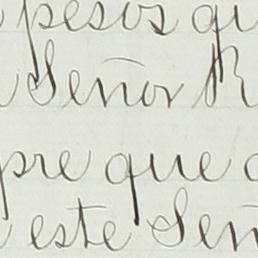 pesos qu
Señor R
pre que
este Señ